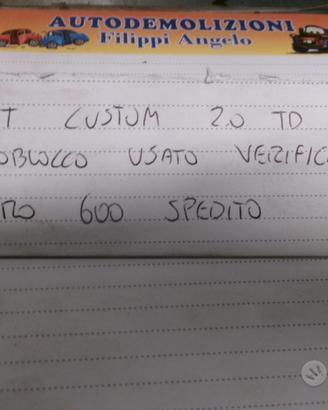 AUTODEMOLIZIONI
Filippi Angelo
T CUSTOM 2.0 TD
OBLOCCO USATO VERIFIC
RO 600 SPEDITO